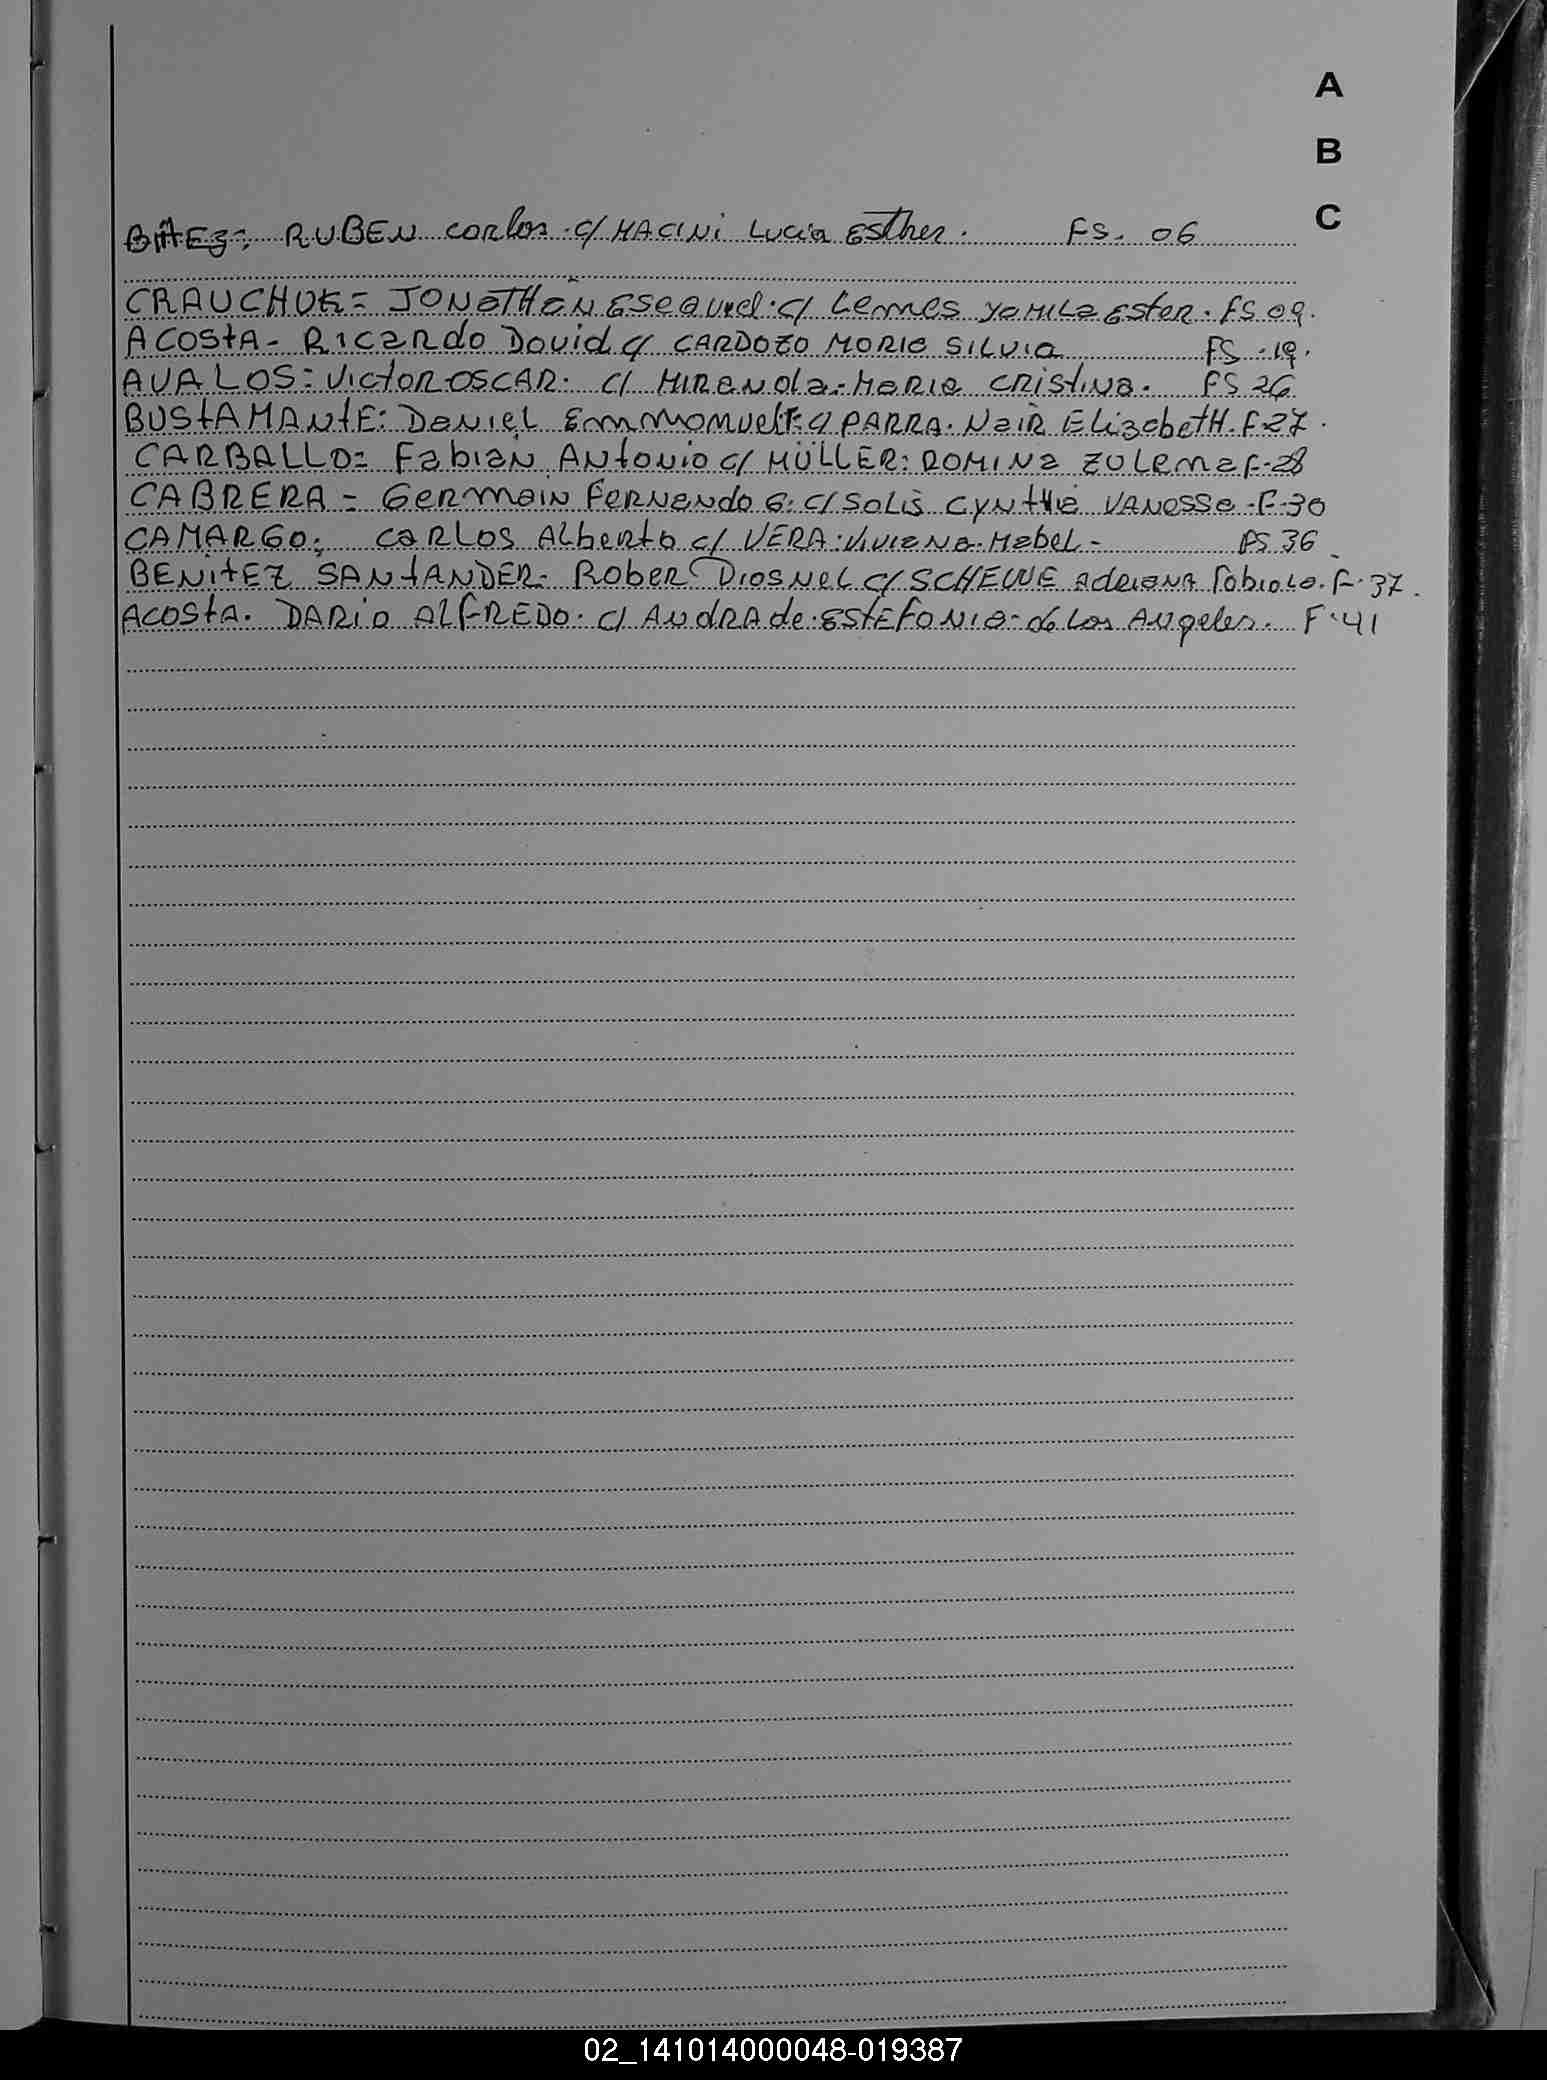 A
B
C
RUBEN Carlos. c/ MACINI Lucia Esther. FS. 06
CRAUCHUK= JONATHAN Esequiel. c/ Lemes YAMILA ESTER. FS 09.
ACOSTA- Ricardo David c/ CARDOZO MARIA SILVIA FS. 19.
AVALOS= Victor OSCAR. c/ MIRANDA. MARIA CRISTINA. FS 26
BUSTAMANTE: DANIEL c/ PARRA. NAIR ElizabetH. F-27.
CARBALLO= Fabian ANTONIO c/ MÜLLER: ROMINA ZULEMA F-28
CABRERA- GERMAIN FERNANDO G. c/ SOLIS CYNTHIA VANESSA. F-30
CAMARGO: CARLOS Alberto c/ VERA. VIVIANA. Mabel- FS 36
BENITEZ SANTANDER- Rober DIOSNEL c/ ADRIANA Fabiola. F. 37.
ACOSTA. DARIO ALFREDO. c/ ANDRADE. ESTEFANIA. de Los Angeles. F. 41
02_141014000048-019387